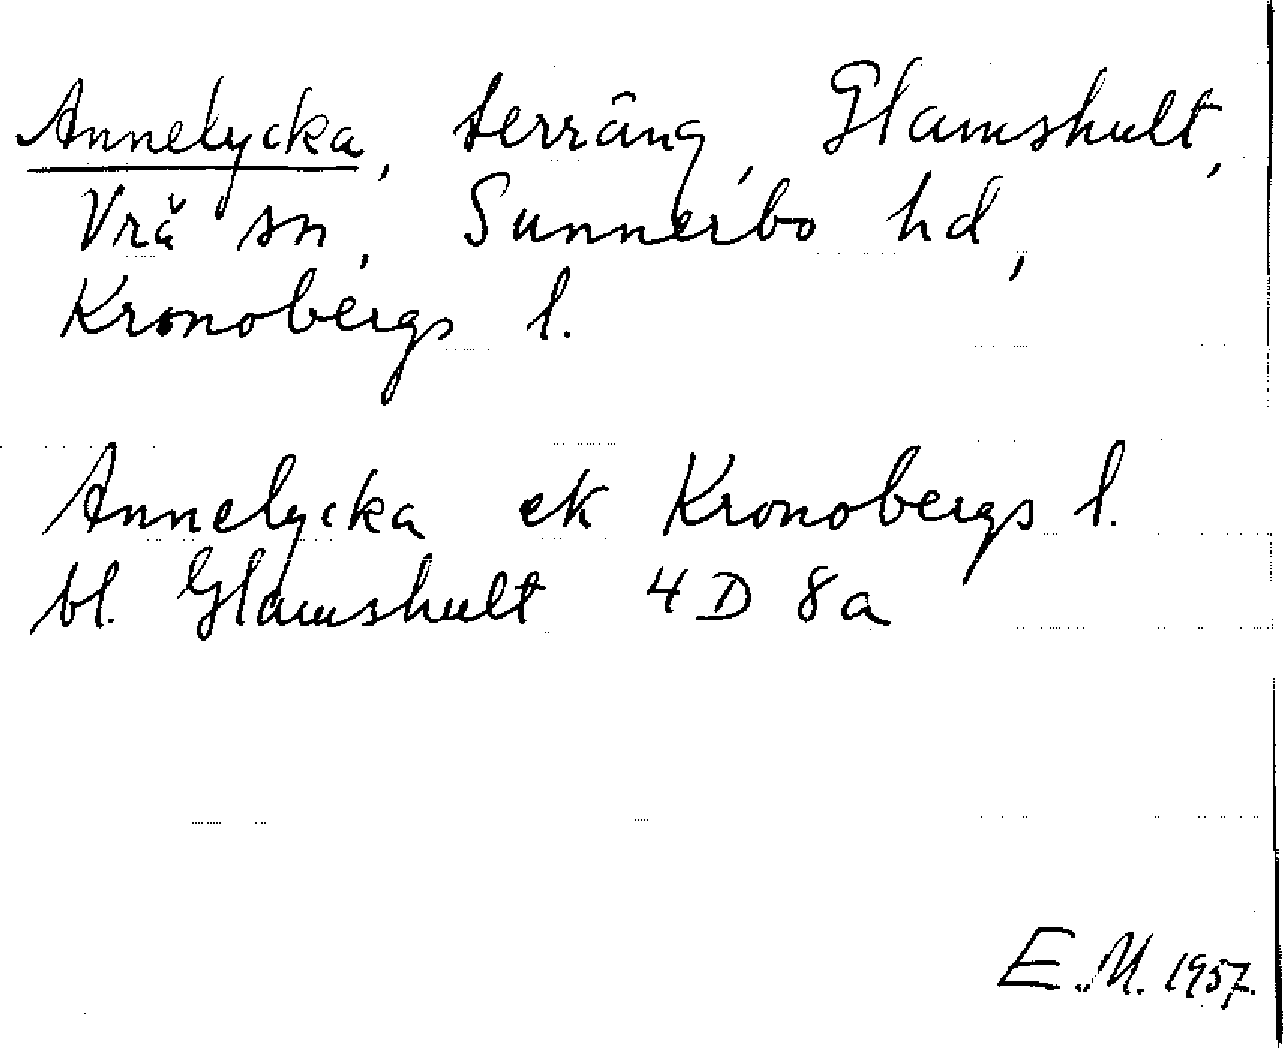 Annelycka, terräng, Glamshult,
Vrå sn, Sunnerbo hd,
Kronobergs l.
Annelycka ek Kronobergs l.
bl. Glamshult 4 D 8a
E.M. 1957.